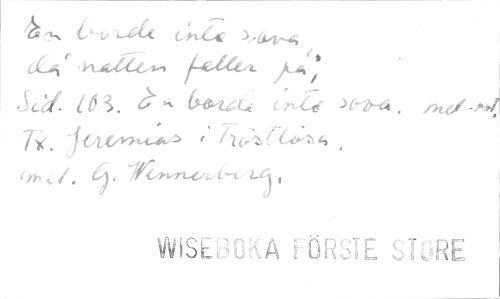 En borde inte sova,
då natten faller på;
Sid. 103. En borde inte sova. mel. not.
Tx. Jeremias i Tröstlösa.
mel. G. Wennerberg.
WISEBOKA FÖRSTE STORE